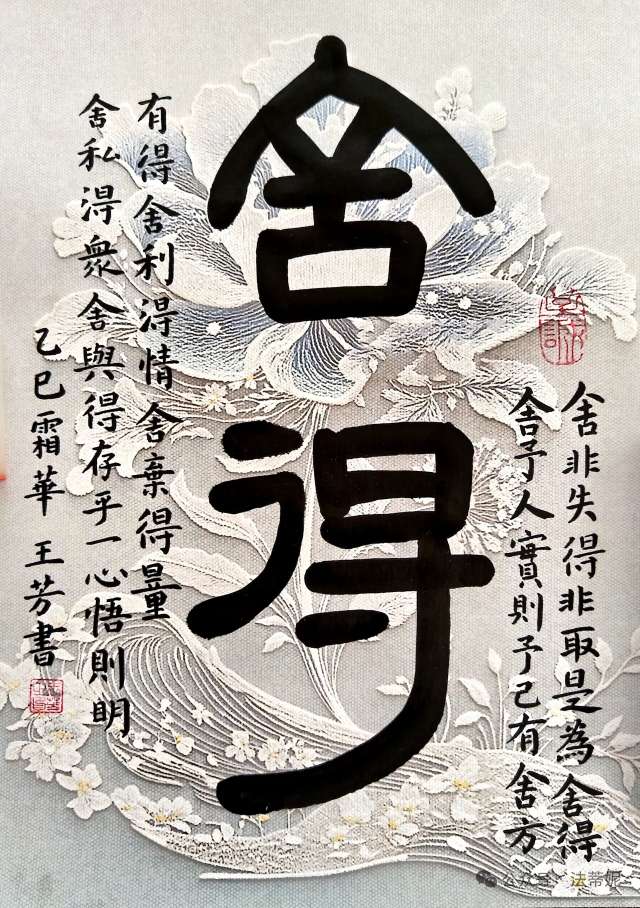 舍得
舍非失得非取是為舍得
舍予人實則予己有舍方
有得舍利得情舍棄得量
舍私得衆舍與得存乎一心悟則明
乙巳霜華王芳書
公众号·法蒂妮